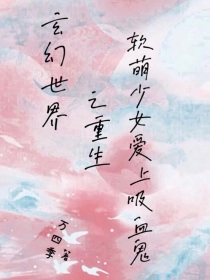 玄幻世界
之重生
软萌少女爱上吸血鬼
万四季 著